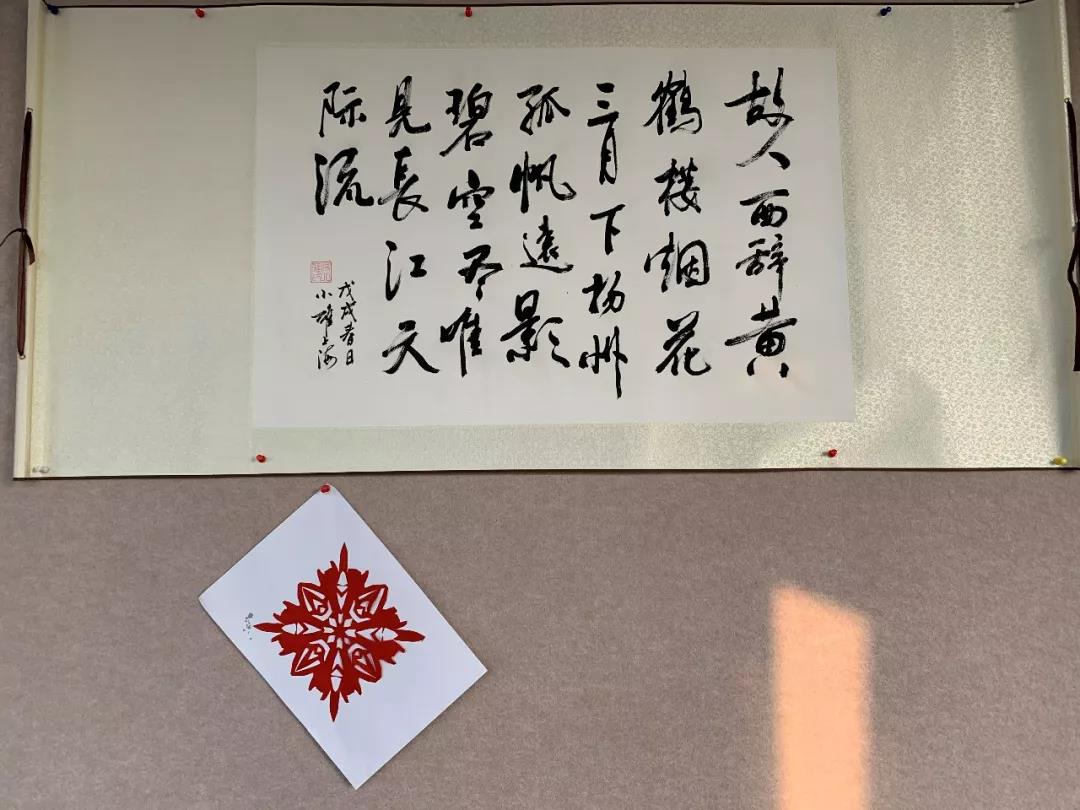 故人西辞黄
鹤楼烟花
三月下扬州
孤帆遠影
碧空尽唯
見長江天
际流
戊戌春日
小雄上海